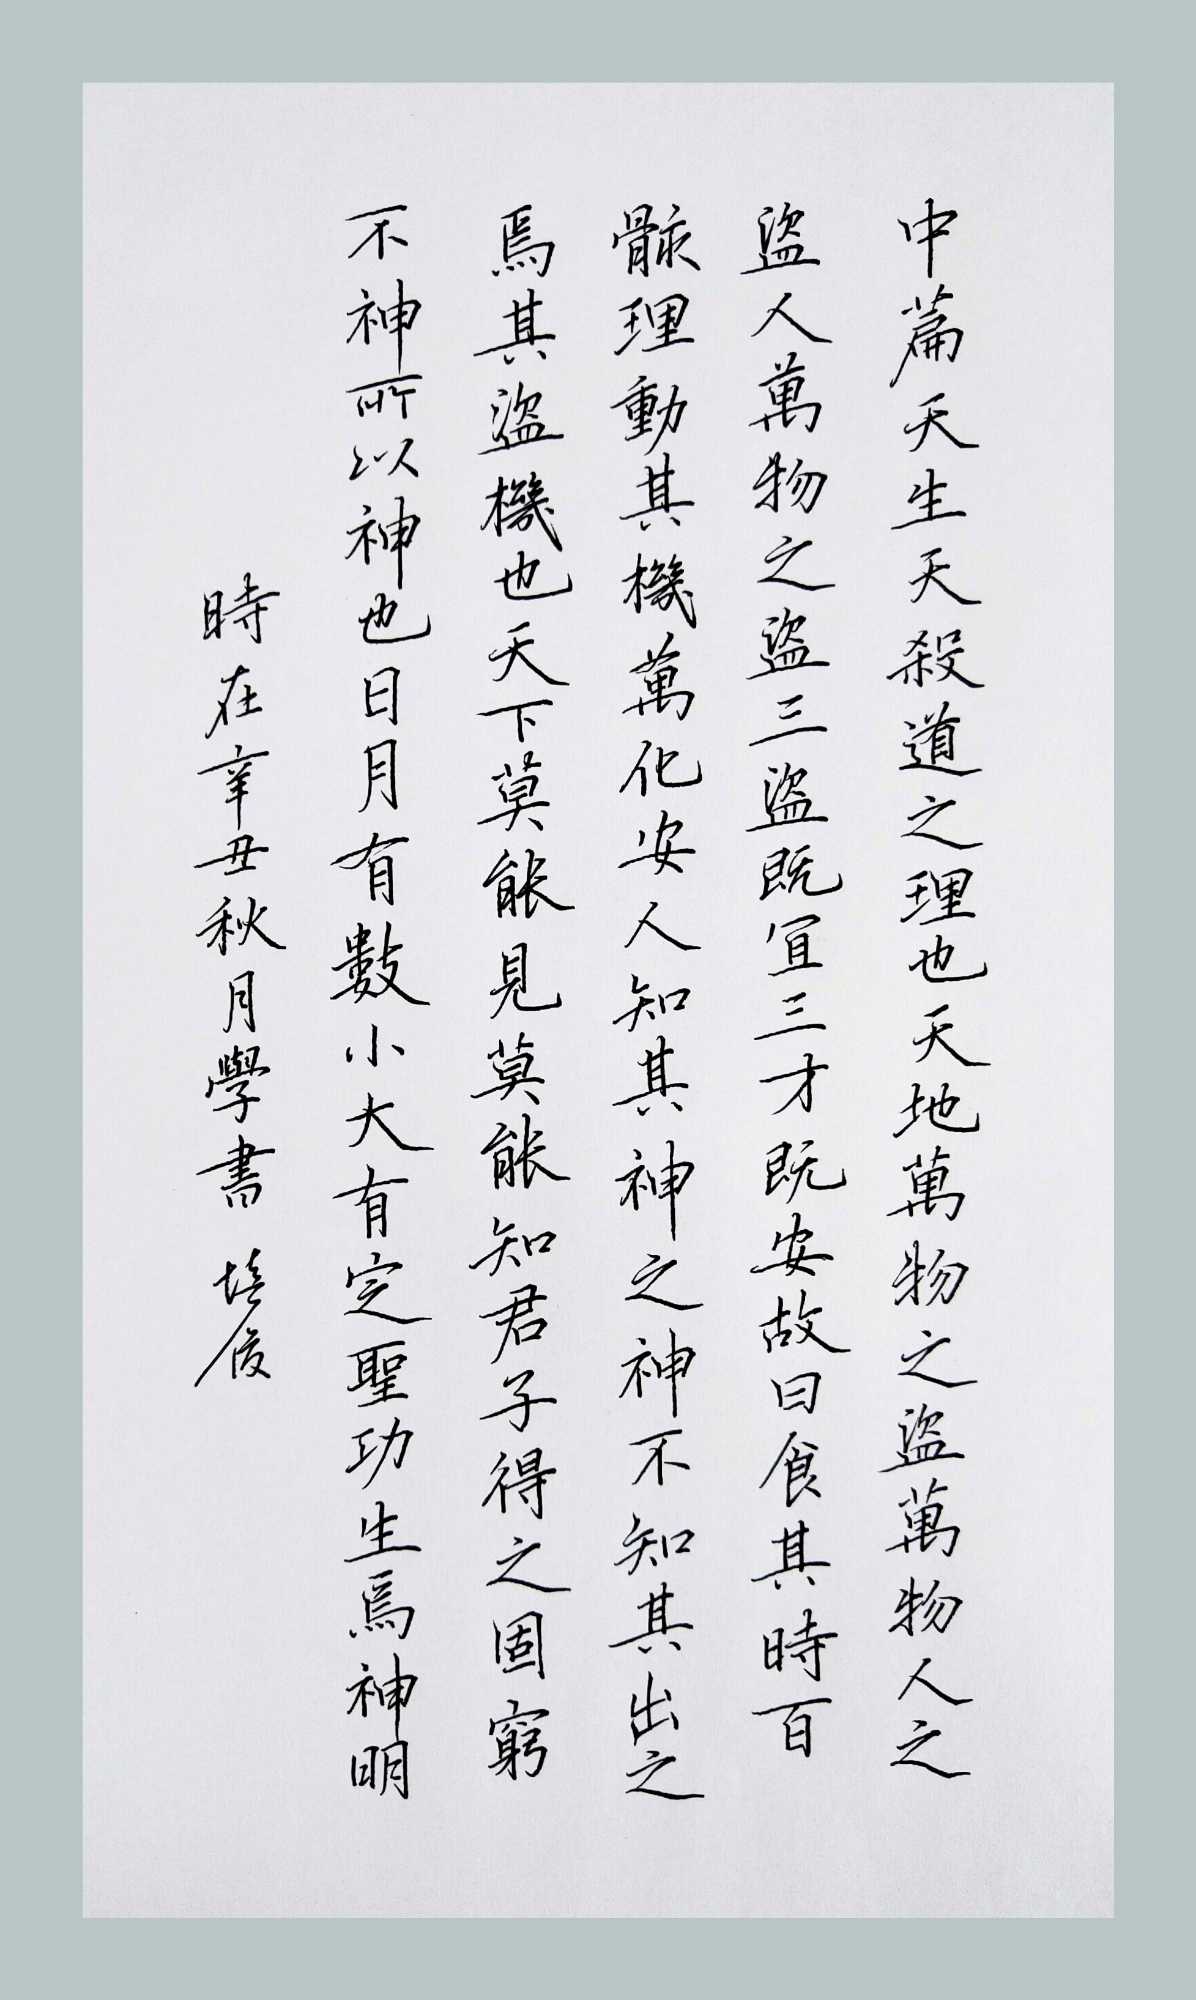 中篇天生天殺道之理也天地萬物之盜萬物人之
盜人萬物之盜三盜既宜三才既安故曰食其時百
骸理動其機萬化安人知其神之神不知其出之
焉其盜機也天下莫能見莫能知君子得之固窮
不神所以神也日月有數小大有定聖功生焉神明
時在辛丑秋月學書 培俊